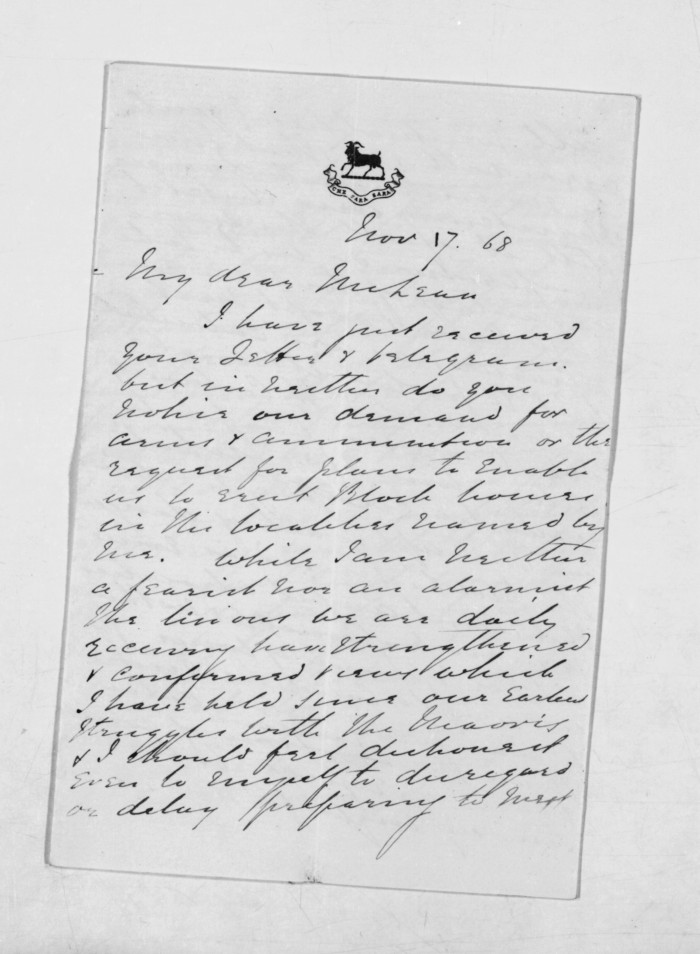 Nov 17. 68
My dear McLean
I have just received
your Letter & telegram.
but in neither do you
notice our demand for
arms & ammunition or the
request for plans to enable
us to erect Block houses
in the localities named by
me. While I am neither
a fearist nor an alarmist
the lessons we are daily
receiving have strengthened
& confirmed views which
I have held since our Earlier
struggles with the Maoris
& I should feel dishonest
even to myself to disregard
or delay preparing to meet